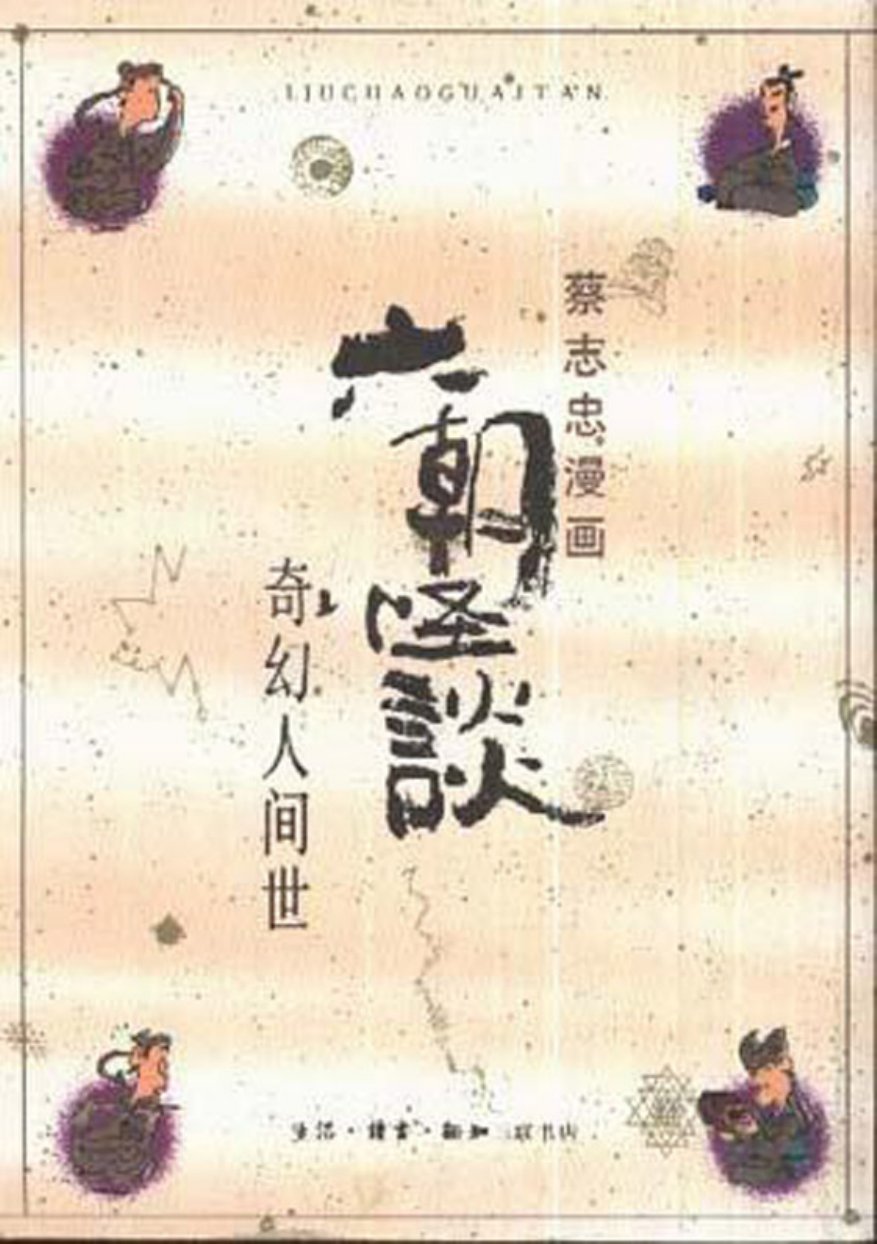 LIUCHAOGUAITAN
蔡志忠漫画
六朝怪談
奇幻人间世
生活·讀書·新知三联书店